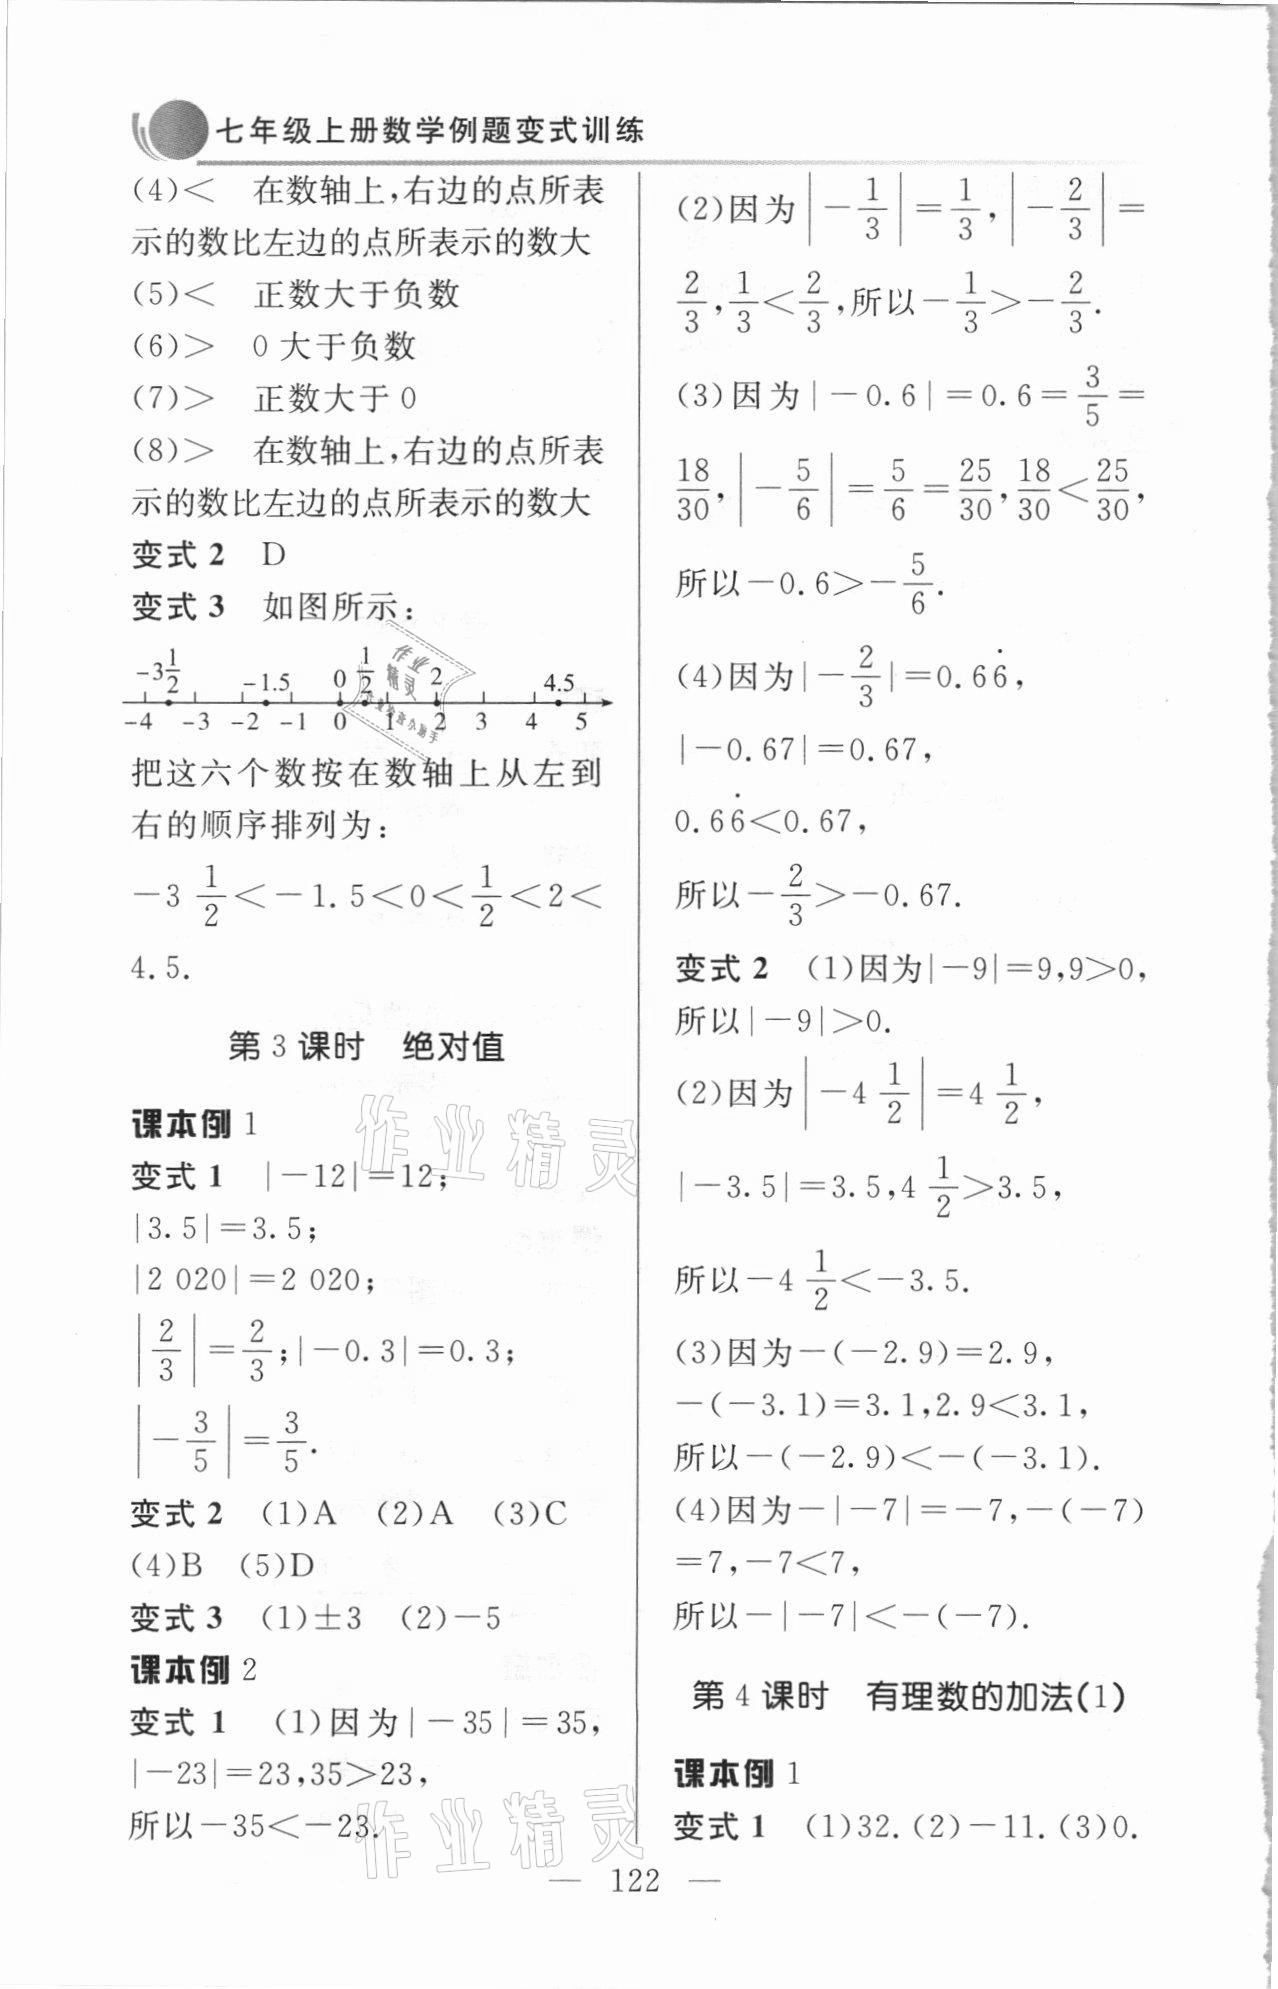 七年级上册数学例题变式训练
(4)＜　在数轴上,右边的点所表
示的数比左边的点所表示的数大
(5)＜　正数大于负数
(6)＞　0大于负数
(7)＞　正数大于0
(8)＞　在数轴上,右边的点所表
示的数比左边的点所表示的数大
变式2　D
变式3　如图所示:
-3 1/2　-1.5　0　1/2　2　4.5
-4　-3　-2　-1　0　1　2　3　4　5
作业
精灵
作业检查小助手
把这六个数按在数轴上从左到
右的顺序排列为:
-3 1/2＜-1.5＜0＜1/2＜2＜
4.5.
第3课时　绝对值
课本例1
变式1　|-12|=12;
|3.5|=3.5;
|2 020|=2 020;
|2/3|=2/3;|-0.3|=0.3;
|-3/5|=3/5.
变式2　(1)A　(2)A　(3)C
(4)B　(5)D
变式3　(1)±3　(2)-5
课本例2
变式1　(1)因为|-35|=35,
|-23|=23,35＞23,
所以-35＜-23.
(2)因为|-1/3|=1/3,|-2/3|=
2/3,1/3＜2/3,所以-1/3＞-2/3.
(3)因为|-0.6|=0.6=3/5=
18/30,|-5/6|=5/6=25/30,18/30＜25/30,
所以-0.6＞-5/6.
(4)因为|-2/3|=0.66̇,
|-0.67|=0.67,
0.66̇＜0.67,
所以-2/3＞-0.67.
变式2　(1)因为|-9|=9,9＞0,
所以|-9|＞0.
(2)因为|-4 1/2|=4 1/2,
|-3.5|=3.5,4 1/2＞3.5,
所以-4 1/2＜-3.5.
(3)因为-(-2.9)=2.9,
-(-3.1)=3.1,2.9＜3.1,
所以-(-2.9)＜-(-3.1).
(4)因为-|-7|=-7,-(-7)
=7,-7＜7,
所以-|-7|＜-(-7).
第4课时　有理数的加法(1)
课本例1
变式1　(1)32.(2)-11.(3)0.
作业精灵
作业精灵
— 122 —